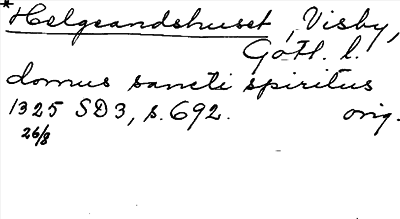 *Helgeandshuset, Visby,
Gotl. l.
domus sancti spiritus
1325 SD3, s. 692. orig.
26/8